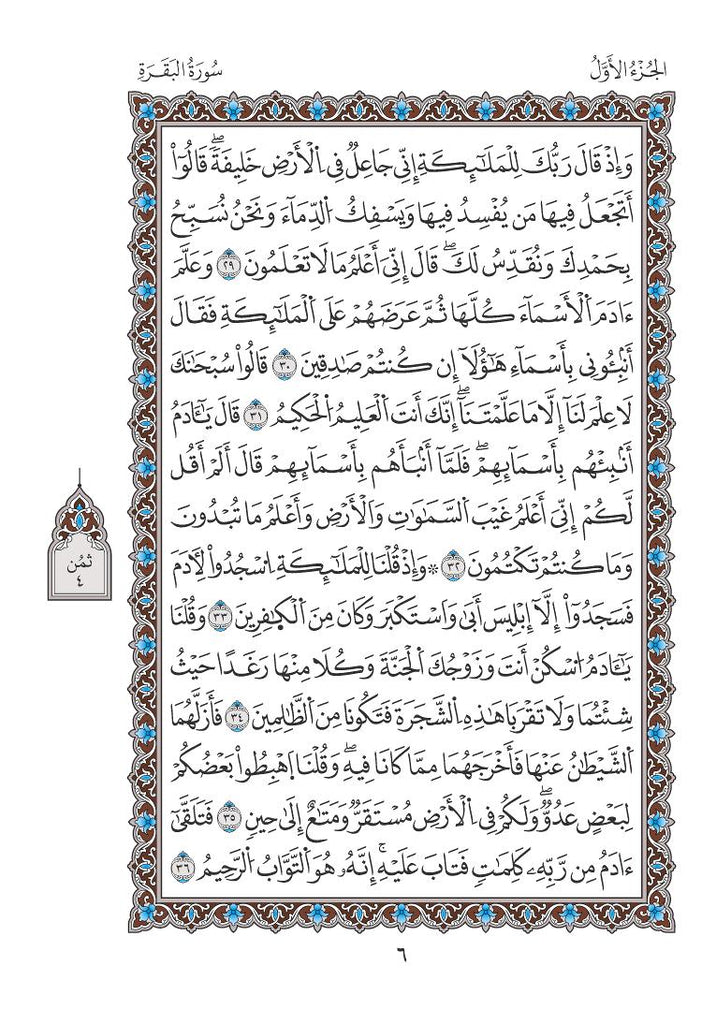 الجُزْءُ الأَوَّلُ
سُورَةُ البَقَرَةِ
وَإِذْ قَالَ رَبُّكَ لِلْمَلَٰٓئِكَةِ إِنِّي جَاعِلٞ فِي اِ۬لْأَرْضِ خَلِيفَةٗۖ قَالُوٓاْ
أَتَجْعَلُ فِيهَا مَن يُفْسِدُ فِيهَا وَيَسْفِكُ اُ۬لدِّمَآءَ وَنَحْنُ نُسَبِّحُ
بِحَمْدِكَ وَنُقَدِّسُ لَكَۖ قَالَ إِنِّيَ أَعْلَمُ مَا لَا تَعْلَمُونَ ٢٩ وَعَلَّمَ
ءَادَمَ اَ۬لْأَسْمَآءَ كُلَّهَا ثُمَّ عَرَضَهُمْ عَلَى اَ۬لْمَلَٰٓئِكَةِ فَقَالَ
أَنۢبِـُٔونِي بِأَسْمَآءِ هَٰٓؤُلَآ إِن كُنتُمْ صَٰدِقِينَ ٣٠ قَالُواْ سُبْحَٰنَكَ
لَا عِلْمَ لَنَآ إِلَّا مَا عَلَّمْتَنَآۖ إِنَّكَ أَنتَ اَ۬لْعَلِيمُ اُ۬لْحَكِيمُ ٣١ قَالَ يَٰٓـَٔادَمُ
أَنۢبِئْهُم بِأَسْمَآئِهِمْۖ فَلَمَّآ أَنۢبَأَهُم بِأَسْمَآئِهِمْ قَالَ أَلَمْ أَقُل
لَّكُمْ إِنِّيَ أَعْلَمُ غَيْبَ اَ۬لسَّمَٰوَٰتِ وَالْأَرْضِ وَأَعْلَمُ مَا تُبْدُونَ
وَمَا كُنتُمْ تَكْتُمُونَ ٣٢ ۞ وَإِذْ قُلْنَا لِلْمَلَٰٓئِكَةِ اِ۟سْجُدُواْ لِأٓدَمَ
فَسَجَدُوٓاْ إِلَّآ إِبْلِيسَ أَبَىٰ وَاسْتَكْبَرَ وَكَانَ مِنَ اَ۬لْكَٰفِرِينَ ٣٣ وَقُلْنَا
يَٰٓـَٔادَمُ اُ۟سْكُنْ أَنتَ وَزَوْجُكَ اَ۬لْجَنَّةَ وَكُلَا مِنْهَا رَغَدًا حَيْثُ
شِئْتُمَا وَلَا تَقْرَبَا هَٰذِهِ اِ۬لشَّجَرَةَ فَتَكُونَا مِنَ اَ۬لظَّٰلِمِينَ ٣٤ فَأَزَلَّهُمَا
اَ۬لشَّيْطَٰنُ عَنْهَا فَأَخْرَجَهُمَا مِمَّا كَانَا فِيهِۖ وَقُلْنَا اَ۪هْبِطُواْ بَعْضُكُمْ
لِبَعْضٍ عَدُوّٞۖ وَلَكُمْ فِي اِ۬لْأَرْضِ مُسْتَقَرّٞ وَمَتَٰعٌ إِلَىٰ حِينٖ ٣٥ فَتَلَقَّىٰٓ
ءَادَمُ مِن رَّبِّهِۦ كَلِمَٰتٖ فَتَابَ عَلَيْهِۚ إِنَّهُۥ هُوَ اَ۬لتَّوَّابُ اُ۬لرَّحِيمُ ٣٦
ثُمُن
٤
٦